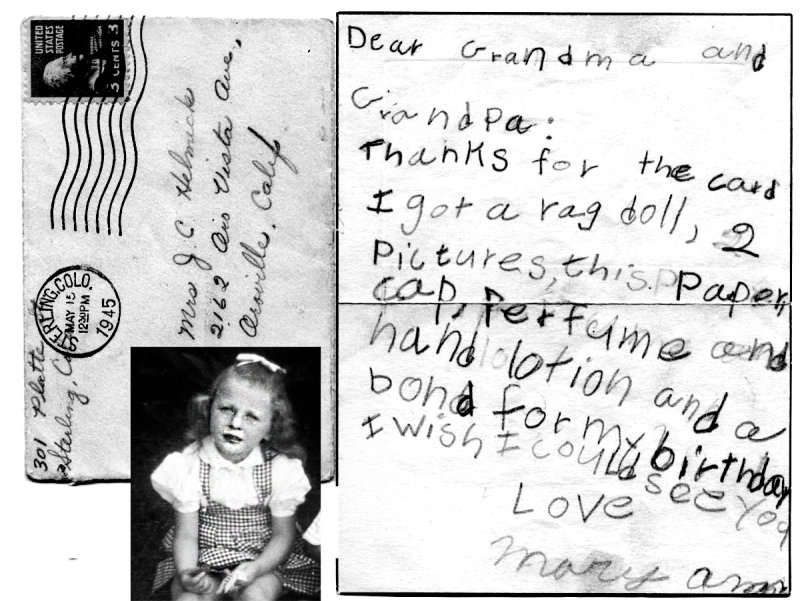 UNITED
STATES
POSTAGE
3 CENTS 3
STERLING, COLO.
MAY 15
1945
Mrs J. C. Helmick
2162 Vista Ave,
Oroville, Calif
301 Platte
Sterling, Colo
Dear Grandma and
Grandpa:
Thanks for the card
I got a rag doll, 2
Pictures, this Paper,
cap, Perfume and
hand lotion and a
bond for my birthday
I wish I could see you
Love
Mary Ann